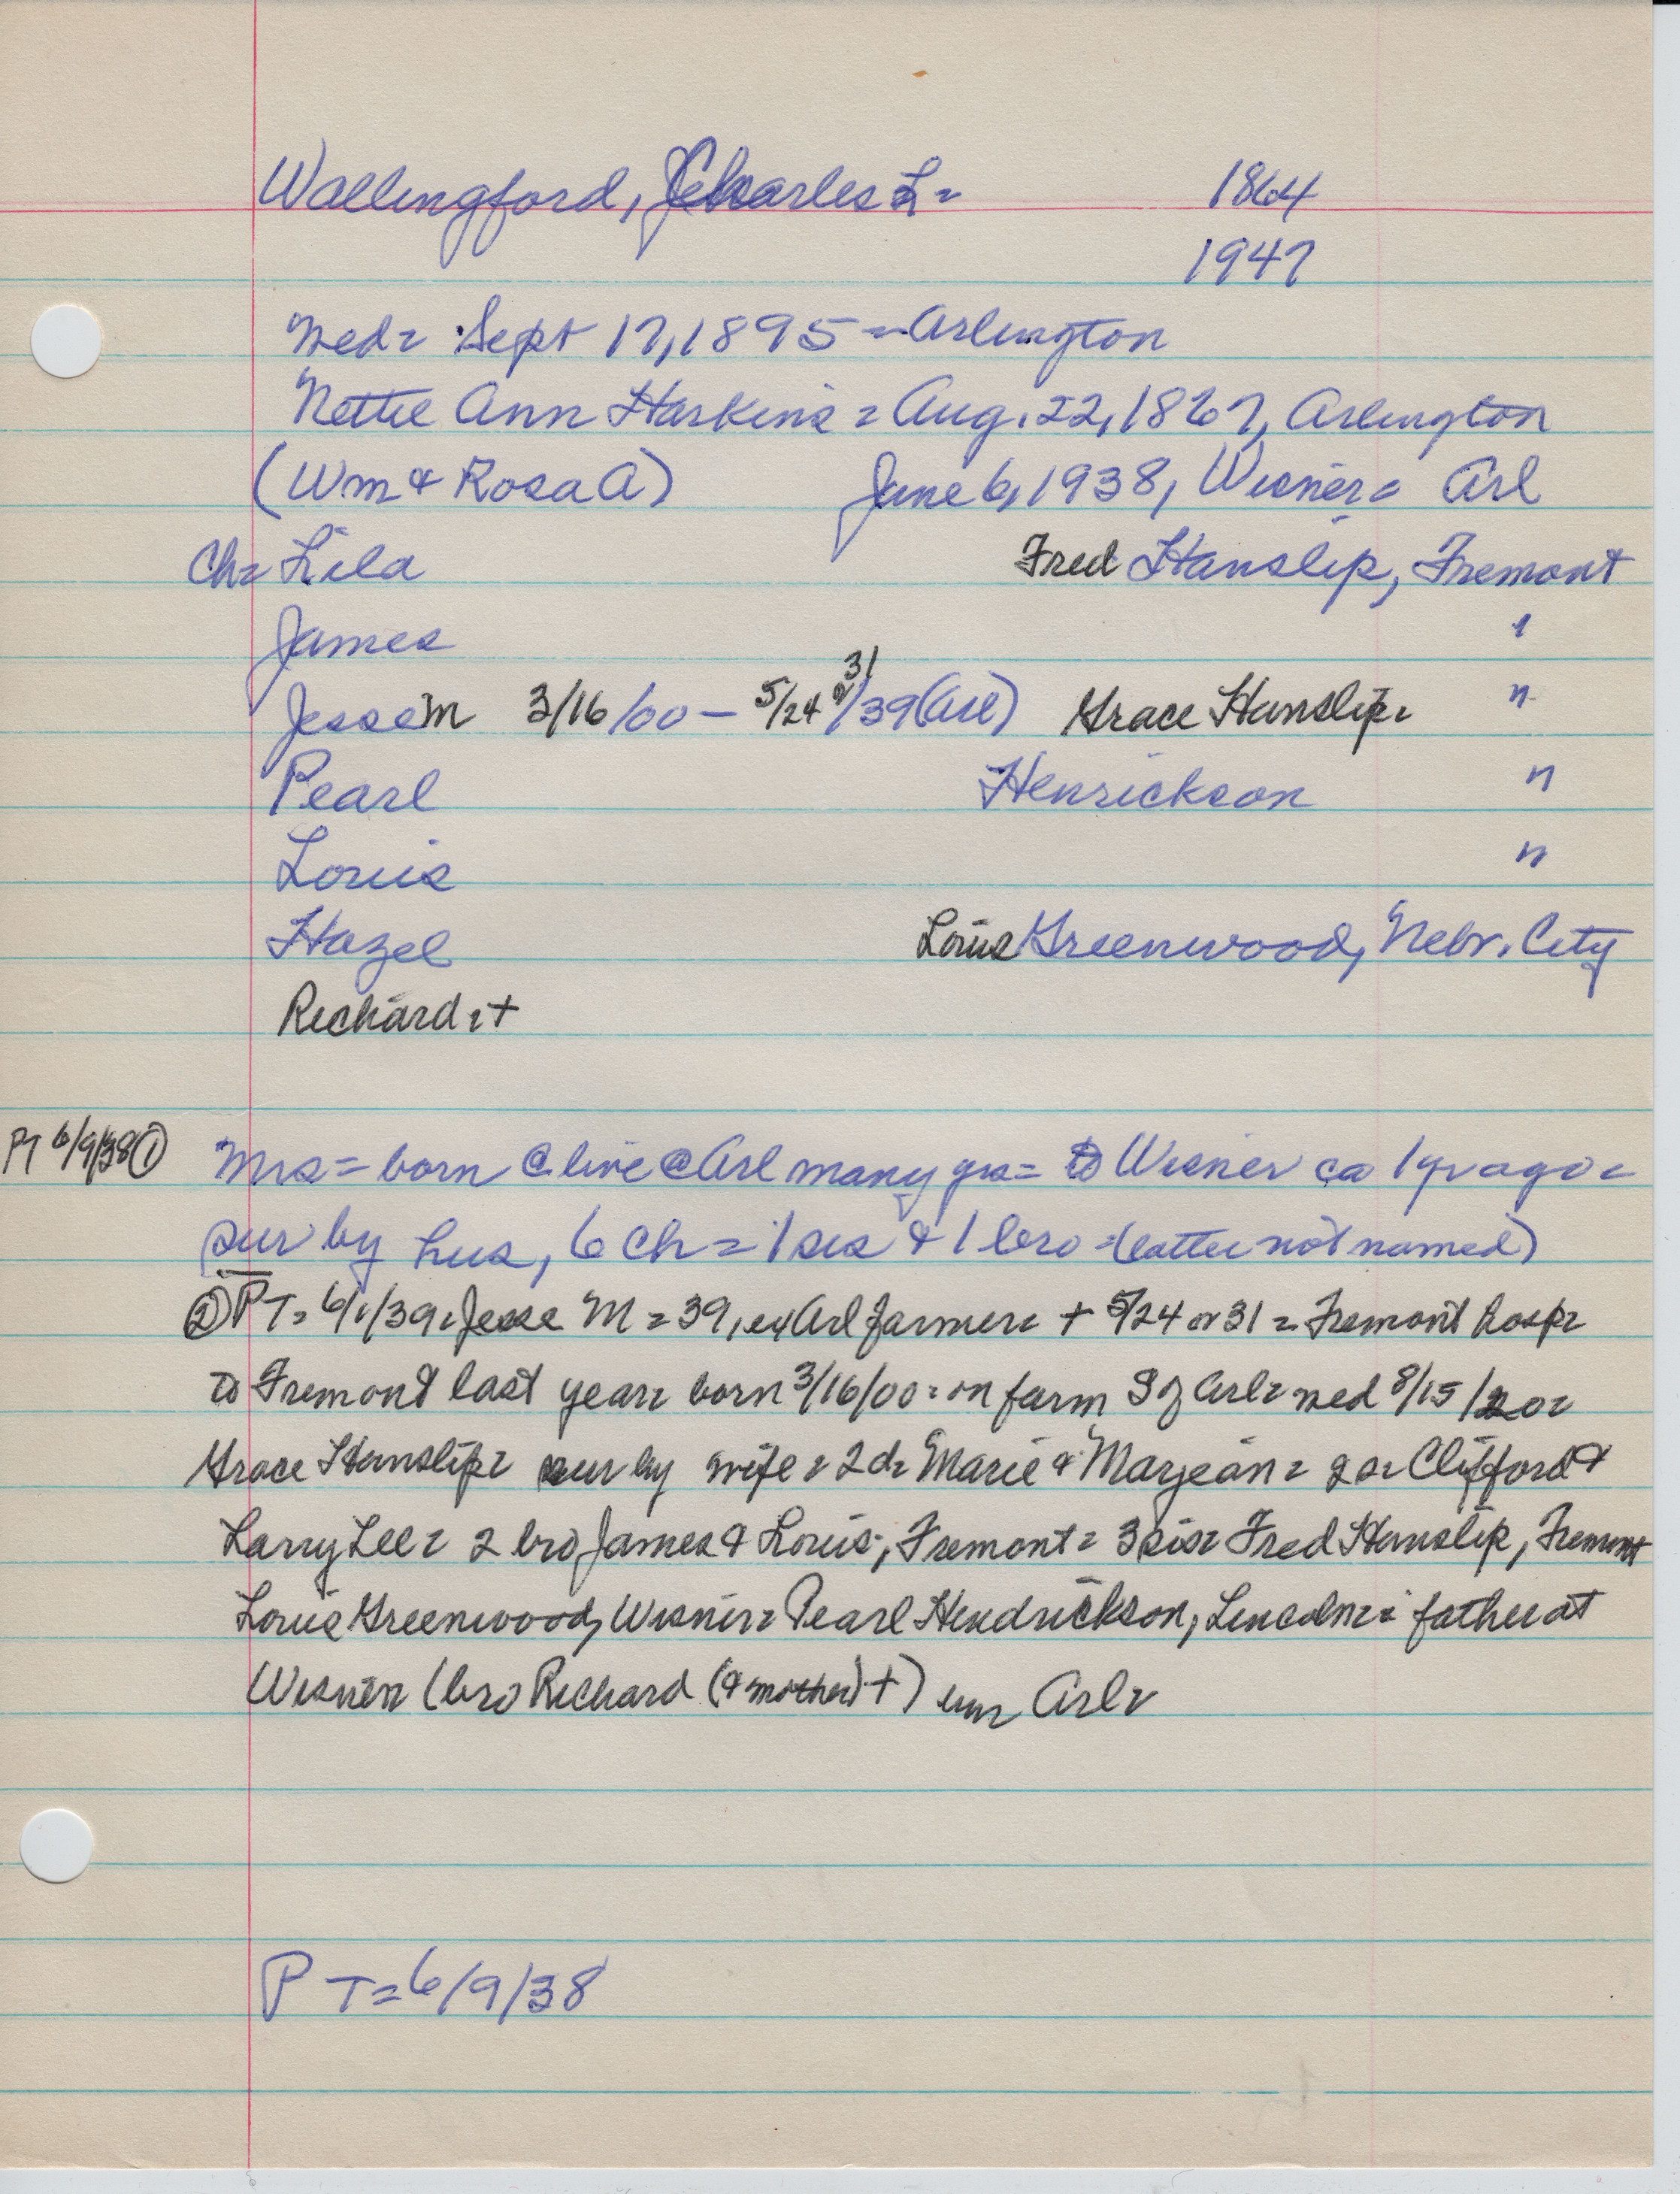 Wallingford, Charles L= 1864
1947
Wed= Sept 17, 1895 = Arlington
Nettie Ann Harkins = Aug. 22, 1867, Arlington
(Wm & Rosa A) June 6, 1938, Wisner = Arl
Ch= Lila Fred Hanslip, Fremont
James "
Jesse M 3/16/00 - 5/24 31/39 (Arl) Grace Hanslip= "
Pearl Henrickson "
Louis "
Hazel Louis Greenwood, Nebr. City
Richard = +
PT 6/9/38 ① Mrs = born @ live @ Arl many yrs = to Wisner ca 1 yr ago =
sur by hus, 6 ch = 1 sis & 1 bro = (latter not named)
② PT = 6/1/39 = Jesse M = 39, ex Arl farmer = + 5/24 or 31 = Fremont hosp =
to Fremont last year = born 3/16/00 = on farm S of Arl = wed 8/15/20 =
Grace Hanslip = sur by wife = 2 d = Marie & Marjean = 2 s = Clifford &
Larry Lee = 2 bro James & Louis, Fremont = 3 sis = Fred Hanslip, Fremont
Louis Greenwood, Wisner = Pearl Hendrickson, Lincoln = father at
Wisner (bro Richard (& mother) +) Arl =
PT = 6/9/38